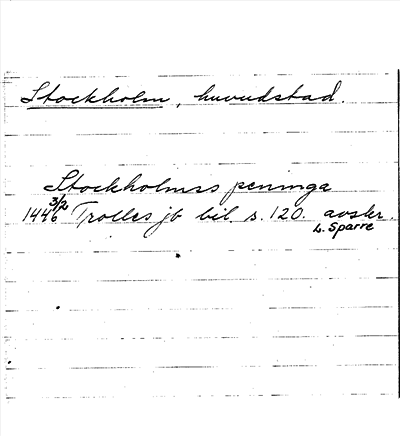 Stockholm, huvudstad.
Stockholmss peninga
1446 3/2 Trolles jb bil. s. 120. avskr.
L. Sparre